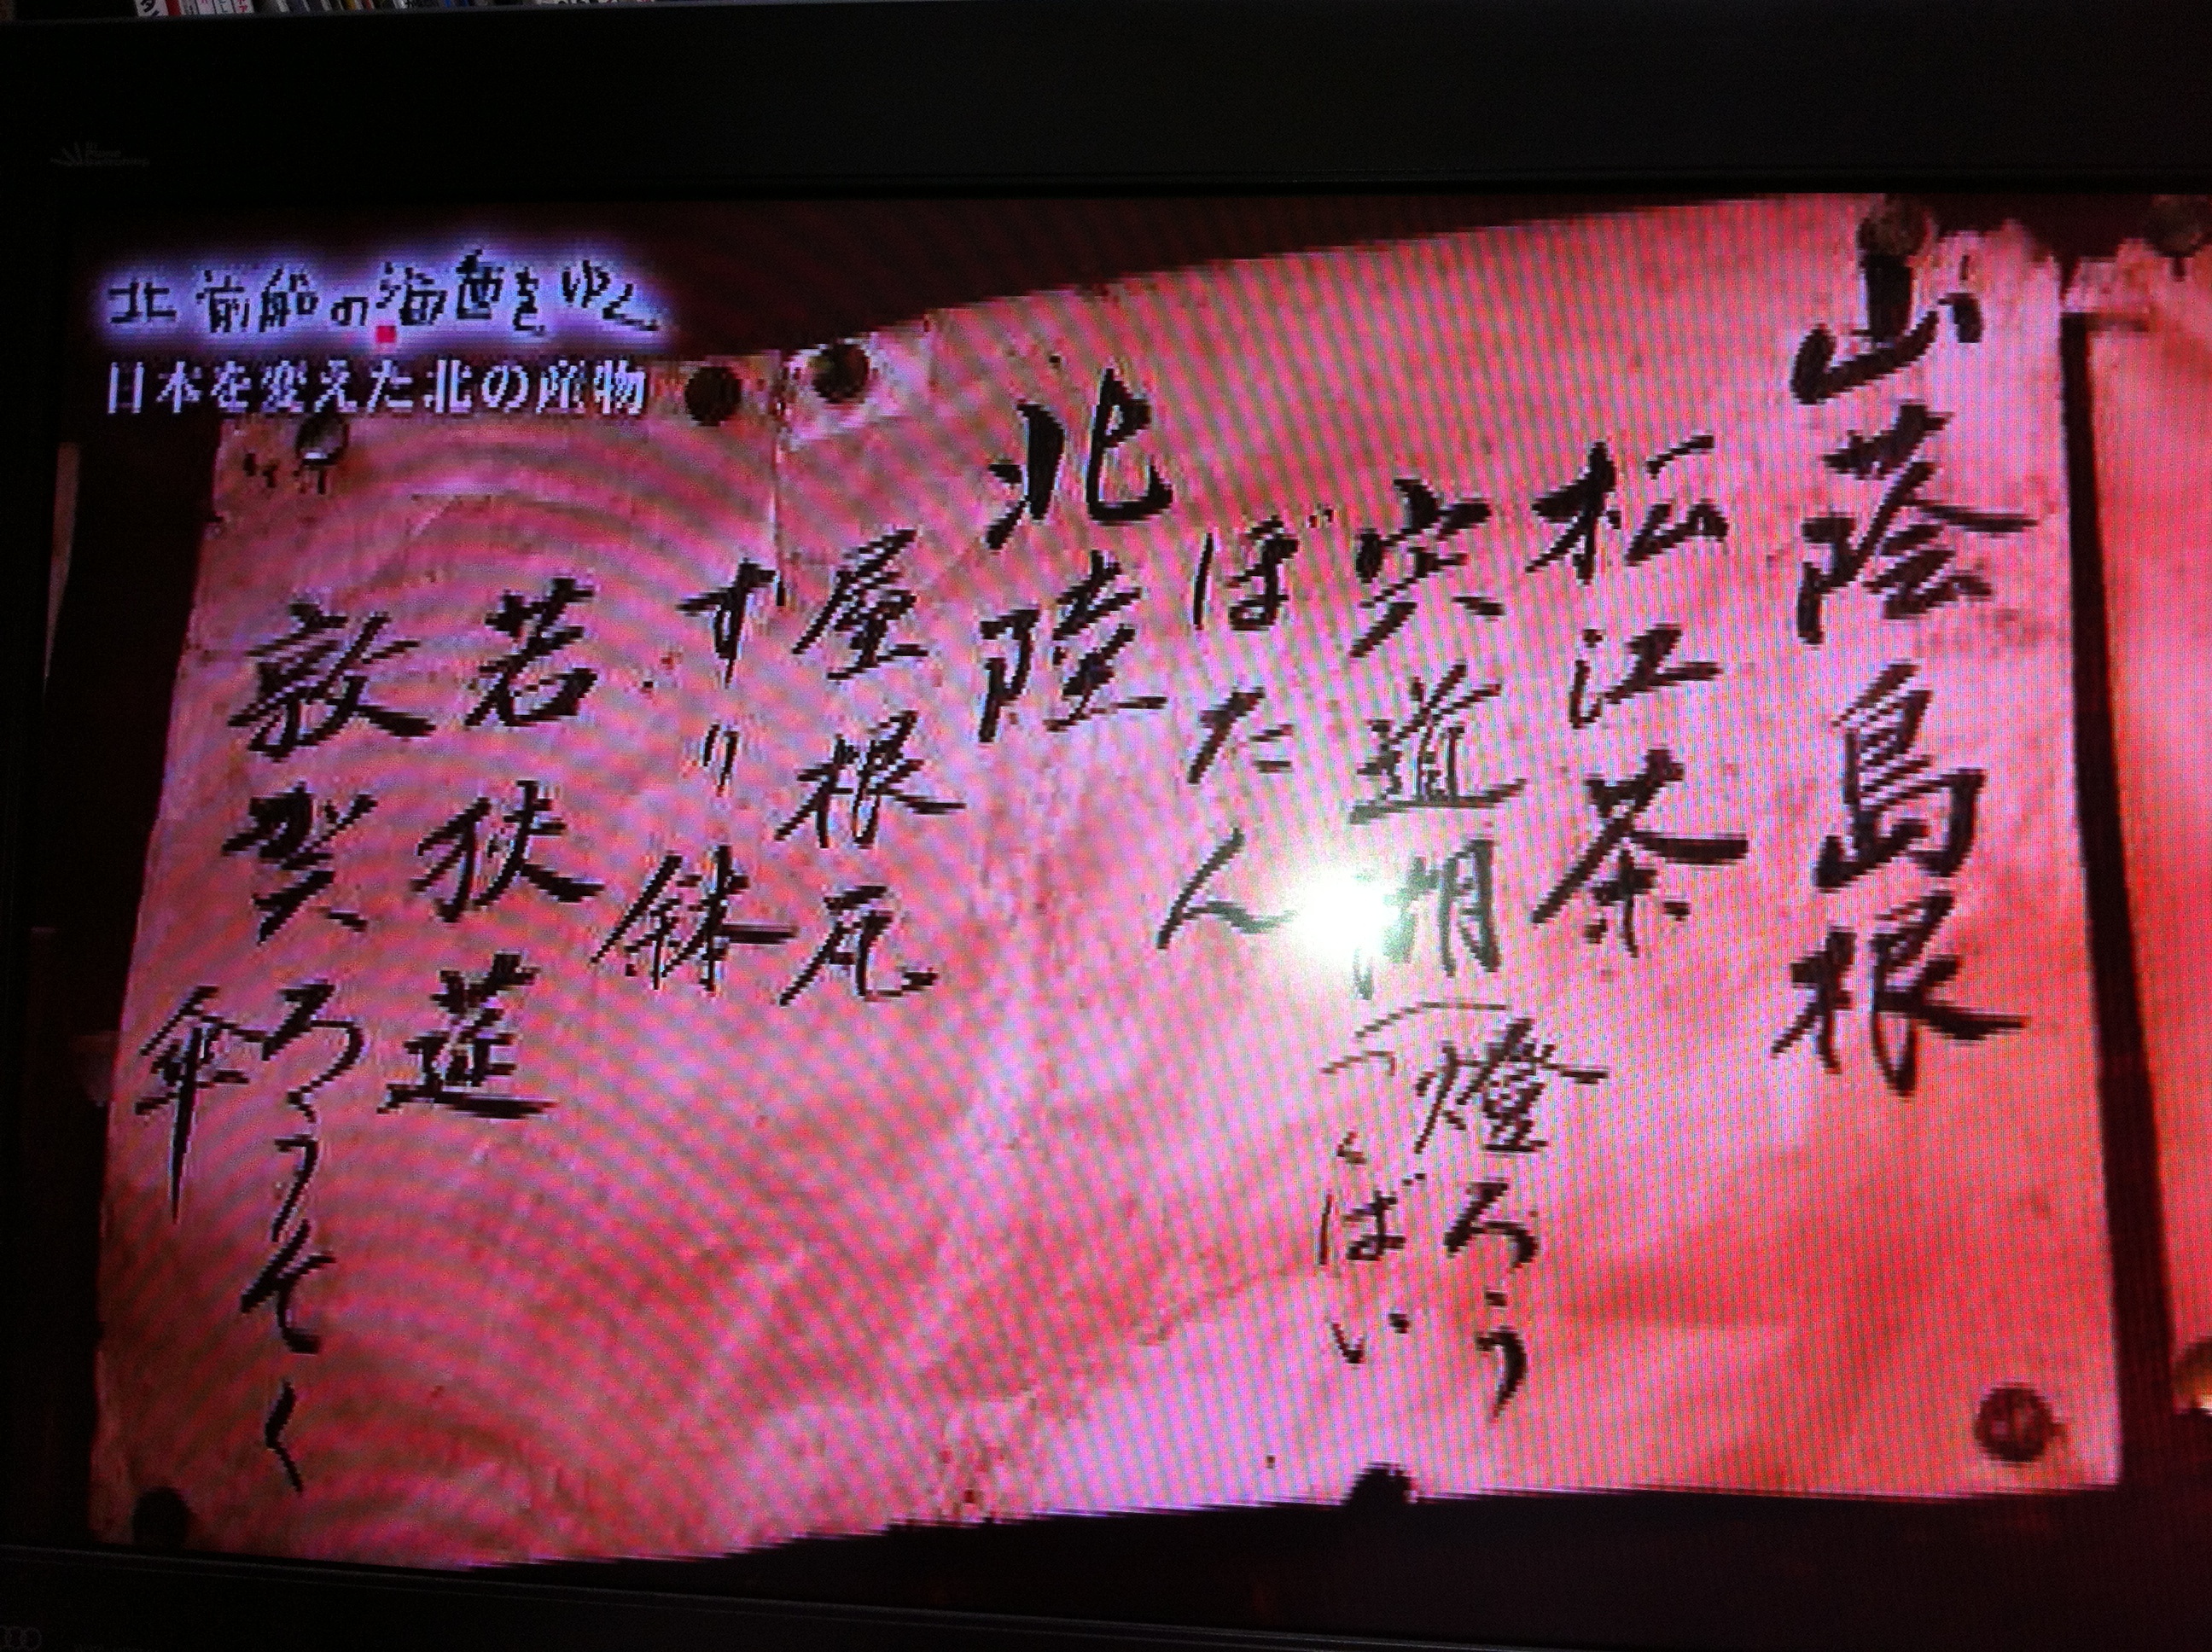 北前船の海道をゆく
日本を変えた北の産物
山陰島根
松江茶
宍道湖
燈ろう
つくばい
ぼたん
北陸
屋根瓦
すり鉢
若狭莚
敦賀
ろうそく
傘